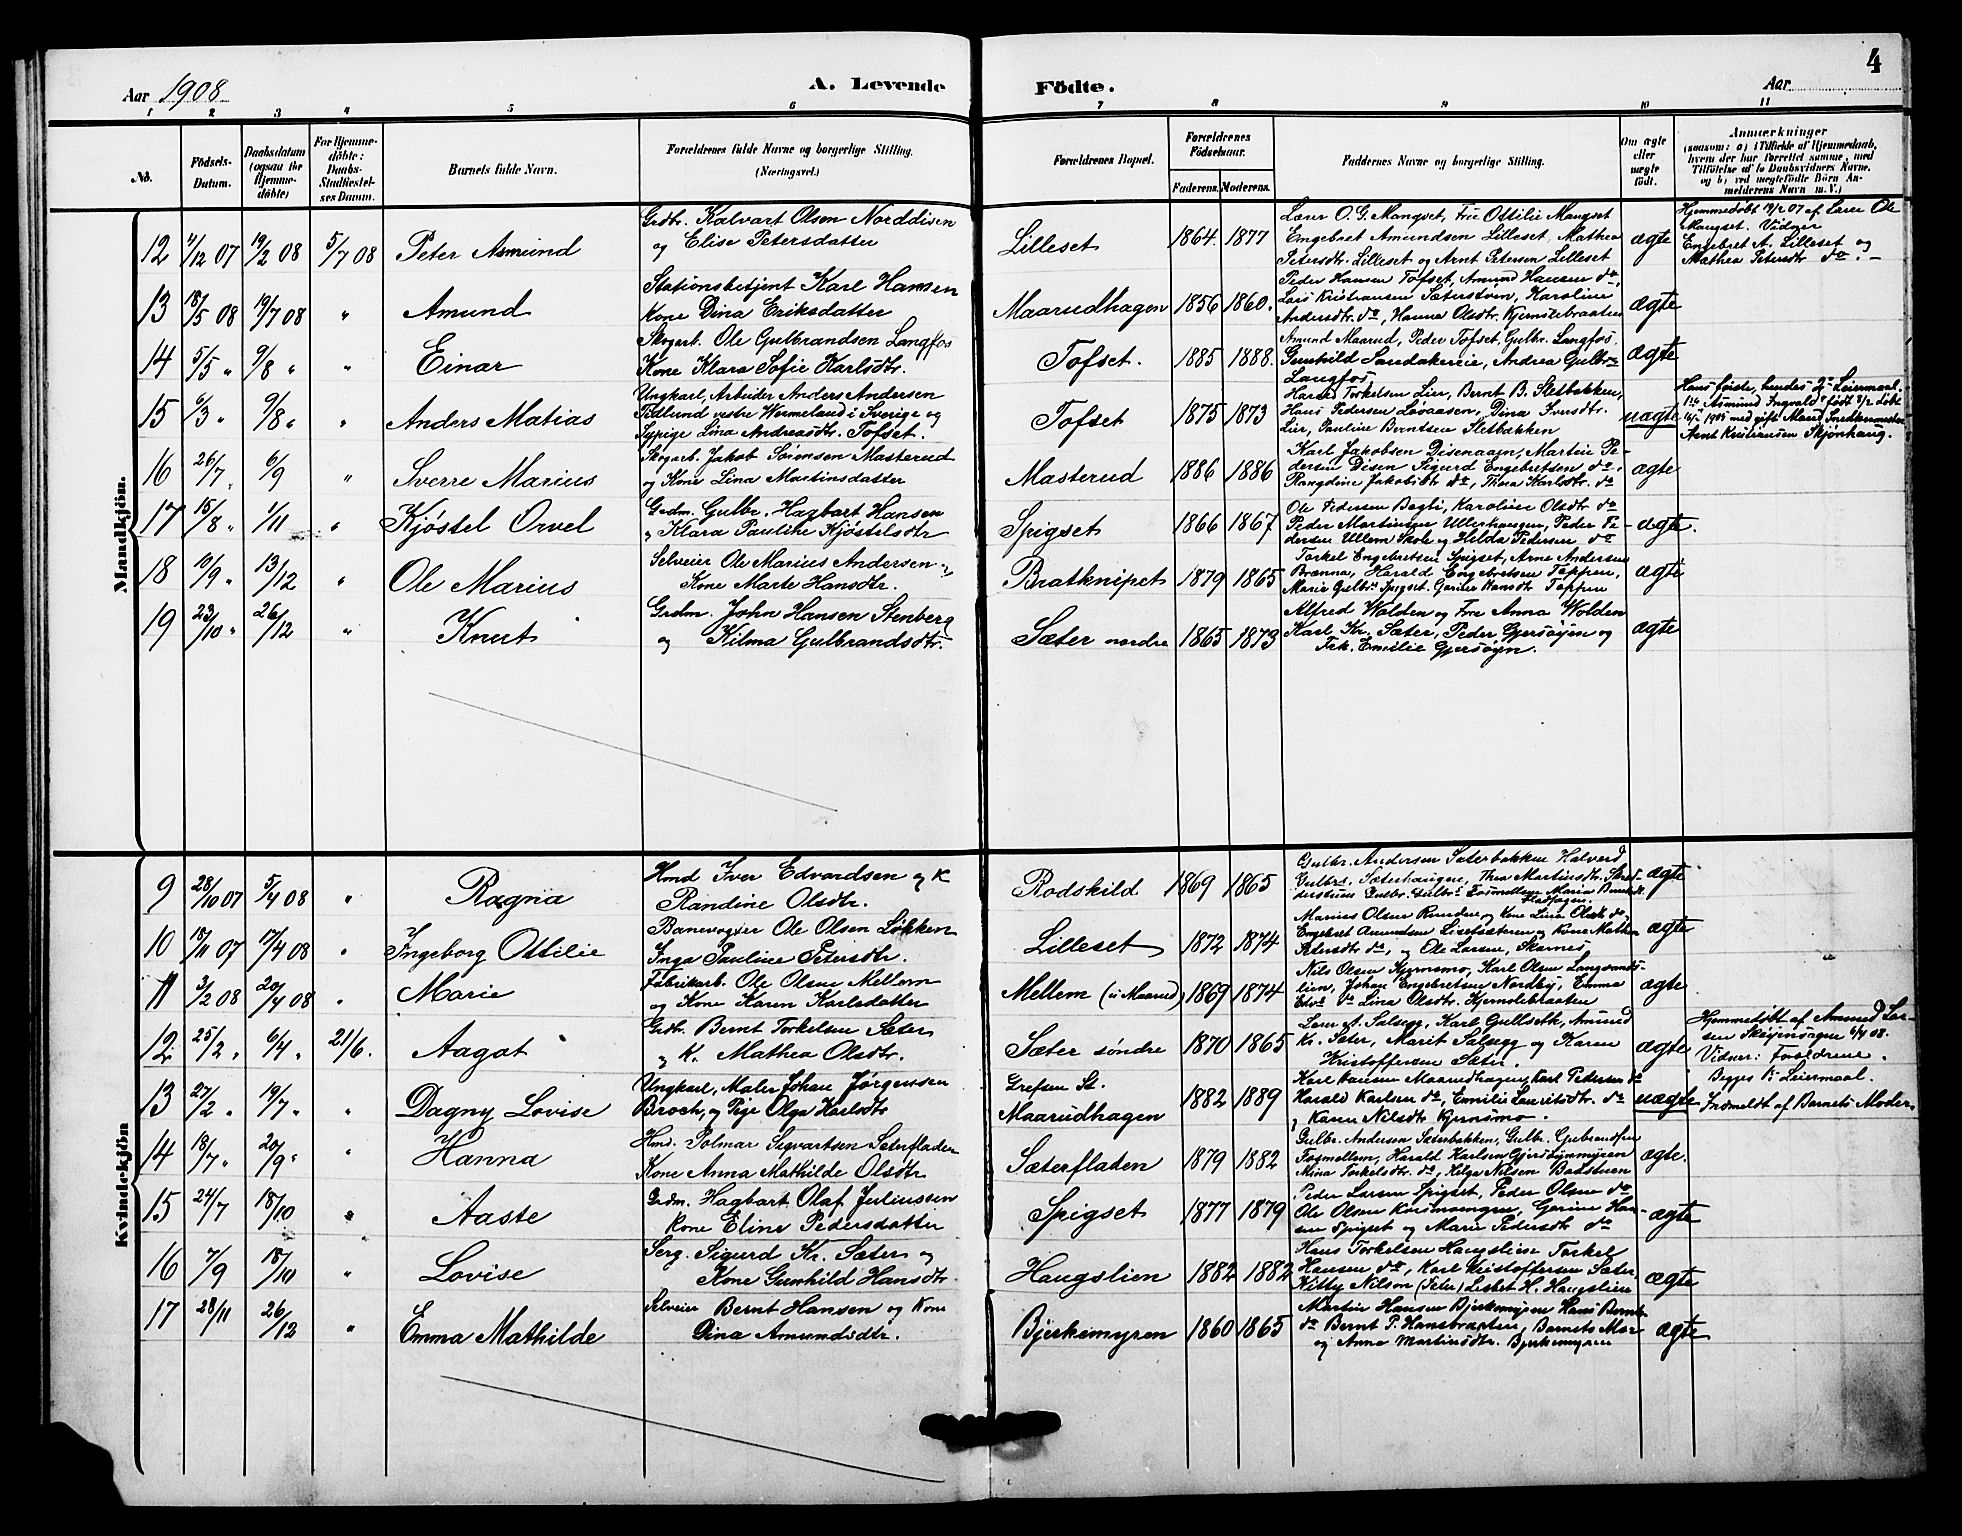 4
Aar 1908
A. Levende
Födte.
Aar
1 2 3 4 5 6 7 8 9 10 11
No.
Födsels-
Datum.
Daabsdatum
(ogsaa for
Hjemme-
döbte)
For Hjemme-
döbte:
Daabs-
Stadfæstel-
ses Datum.
Barnets fulde Navn.
Forældrenes fulde Navne og borgerlige Stilling.
(Næringsvei.)
Forældrenes Bopæl.
Forældrenes
Födselsaar.
Faderens. Moderens.
Faddernes Navne og borgerlige Stilling.
Om ægte
eller
uægte
födt.
Anmærkninger
(saasom: a) i Tilfælde af Hjemmedaab,
hvem der har forrettet samme, med
Tilföielse af to Daabsvidners Navne,
og b) ved uægtefödte Börn An-
melderens Navn m. V.)
Mandkjön.
12 4/12 07 19/2 08 5/7 08 Peter Asmund
Grdbr. Kalvart Olsen Norddisen
og Elise Petersdatter
Lilleset 1864. 1877
Lærer O. G. Mangset, Fru Ottilie Mangset
Engebret Amundsen Lilleset, Mathea
Petersdtr. Lilleset og Arnt Petersen Lilleset
ægte
Hjemmedøbt 19/2 07 af Lærer Ole
Mangset. Vidner
Engebret A. Lilleset og
Mathea Petersdtr do. –
13 18/5 08 19/7 08 " Amund
Stationsbetjent Karl Hansen
Kone Dina Eriksdatter
Maarudhagen 1856 1860.
Peder Hansen Tofset, Amund Hansen do,
Lars Kristiansen Sæterstøen, Karoline
Andersdtr. do, Hanna Olsdtr. Kjernslebraaten
ægte
14 5/5 " 9/8 " " Einar
Skogarb. Ole Gulbrandsen Langfos
Kone Klara Sofie Karlsdtr.
Tofset. 1885 1888.
Amund Maarud, Peder Tofset, Gulbr. Langfos,
Gunhild Sandakereie, Andrea Gulbr.
Langfos
ægte
15 6/3 " 9/8 " " Anders Matias
Ungkarl, Arbeider Anders Andersen
vestre Wermeland i Sverige og
Sypige Lina Andreasdtr. Tofset.
Tofset 1875 1873
Harald Torkelsen Lier, Bernt B. Sletbakken,
Hans Pedersen Løvaasen, Dina
Lier, Pauline Berntsen Sletbækken
uægte
Hans første, hendes 2. Leiermaal.
Asmund Ingvald født
1905 med gift Mand
Arnt Kristiansen Skjønhaug.
16 26/7 " 6/9 " Sverre Marius
Skogarb. Jakob Sörensen Masterud
og Kone Lina Martinsdatter
Masterud 1886 1886
Karl Jakobsen Disenaaen, Martin Pe-
dersen Disen Sigurd Engebretsen do,
Rangdine Jakobsdtr do, Thora Karlsdtr. do
ægte
17 15/8 " 1/11 " Kjøstel Orvel
Grdm. Gulbr. Hagbart Hansen
" Klara Pauline Kjøstelsdtr
Spigset 1866 1867
Ole Pedersen Bagbi, Karoline Olsdtr do
Peder Martinsen Ullerhaugen, Peder Pe-
dersen Ullern Skole og Hilda Pedersen do
ægte.
18 10/9 " 13/12 " Ole Marius
Selveier Ole Marius Andersen
Kone Marte Hansdtr.
Bratknipet 1879 1865
Torkel Engebretsen Spigset, Arne Andersen
Brænna, Harald Engebretsen Tappen,
Marie Gulbr. Spigset. Hansdtr Tappen
ægte
19 23/10 " 26/12 " Knut
Grdm. John Hansen Stenberg
og Kilma Gulbrandsdtr.
Sæter nordre 1865 1873
Alfred Wolden og Fru Anna Wolden
Karl Kr. Sæter, Peder Gjersøyen og
Frk. Emilie Gjersøyn.
ægte
Kvindekjön
9 28/10 07 5/4 08 " Ragna
Hmd Iver Edvardsen og K
Randine Olsdtr.
Rodskild 1869 1865
Gulbr. Andersen Sæterbakken Halvard
Gulbrs. Sæterhaugen, Thea Martinsdtr.
ægte
10 18/11 07 17/4 08 " Ingeborg Ottilie
Banevogter Ole Olsen Løkken
Inga Pauline Petersdtr.
Lilleset 1872 1874
Marius Olsen Runden og Kone Lina Olsdtr do,
Engebret Amundsen og Kone Mathea
Petersdtr do, og Ole Larsen, Skarnes
ægte
11 3/2 08 20/4 08 " Marie
Fabrikarb. Ole Olsen Mellem
og Kone Karen Karlsdatter
Mellem (u. Maarud) 1869 1874
Nils Olsen Kjernsmo, Karl Olsen Langvands-
lien, Johan Engebretsen Nordby, Emma
do Lina Olsdtr. Kjernslebraaten
ægte
12 25/2 " 6/4 " 21/6. Aagot
Grdbr. Bernt Torkelsen Sæter
og K. Mathea Olsdtr.
Sæter søndre 1870 1865
Lærer A. Salsegg, Karl Gullseth, Amund
Kr. Sæter, Marit Salsegg og Karen
Kristoffersen Sæter.
ægte
Hjemmedøbt af Amund Lar-
sen Skøyenshagen 6/4 08.
Vidner: Forældrene.
13 27/2 " 19/7 " " Dagny Lovise
Ungkarl, Maler Johan Jørgensen
Broch, og Pige Olga Karlsdtr
Grefsen St.
Maarudhagen 1882 1889
Karl Hansen Maarudhagen, Karl Pedersen do
Harald Karlsen do, Emilie Lauritsdtr. do
og Karen Nilsdtr Kjernsmo.
uægte
Begges 1. Leiermaal.
Indmeldt af Barnets Moder.
14 18/7 " 20/9 " " Hanna
Hmd. Polmar Sigvartsen Sæterfladen
Kone Anna Mathilde Olsdtr
Sæterfladen 1879 1882
Gulbr. Andersen Sæterbakken, Gulbr. Gulbrandsen
Fosmellem, Harald Karlsen
Mina Torkelsdtr. do, Helga Nilsen Badstuen
ægte.
15 24/7 18/10 " Aaste
Grdm. Hagbart Olaf Juliussen
Kone Eline Pedersdatter
Spigset 1877 1879
Peder Larsen Spigset, Peder Olsen do
Ole Olsen Kursmoengen, Gorine Han-
sen Spigset og Marie Pedersdtr do
ægte
16 7/9 18/10 " Lovise
Serg. Sigurd Kr. Sæter og
Kone Gunhild Hansdtr.
Haugslien 1882 1882
Hans Torkelsen Haugslien Torkel
Hansen do, Karl Kristoffersen Sæter,
Kitty Nilson (Peter) Lisbet H. Haugslien
ægte
17 28/11 26/12 " Emma Mathilde
Selveier Bernt Hansen og Kone
Dina Amundsdtr.
Bjerkemyren 1860 1865
Martin Hansen Bjerkemyren Hans Bernts.
do Bernt P. Hansbraaten, Barnets Mor
og Anna Martinsdtr. Bjerkemyren
ægte